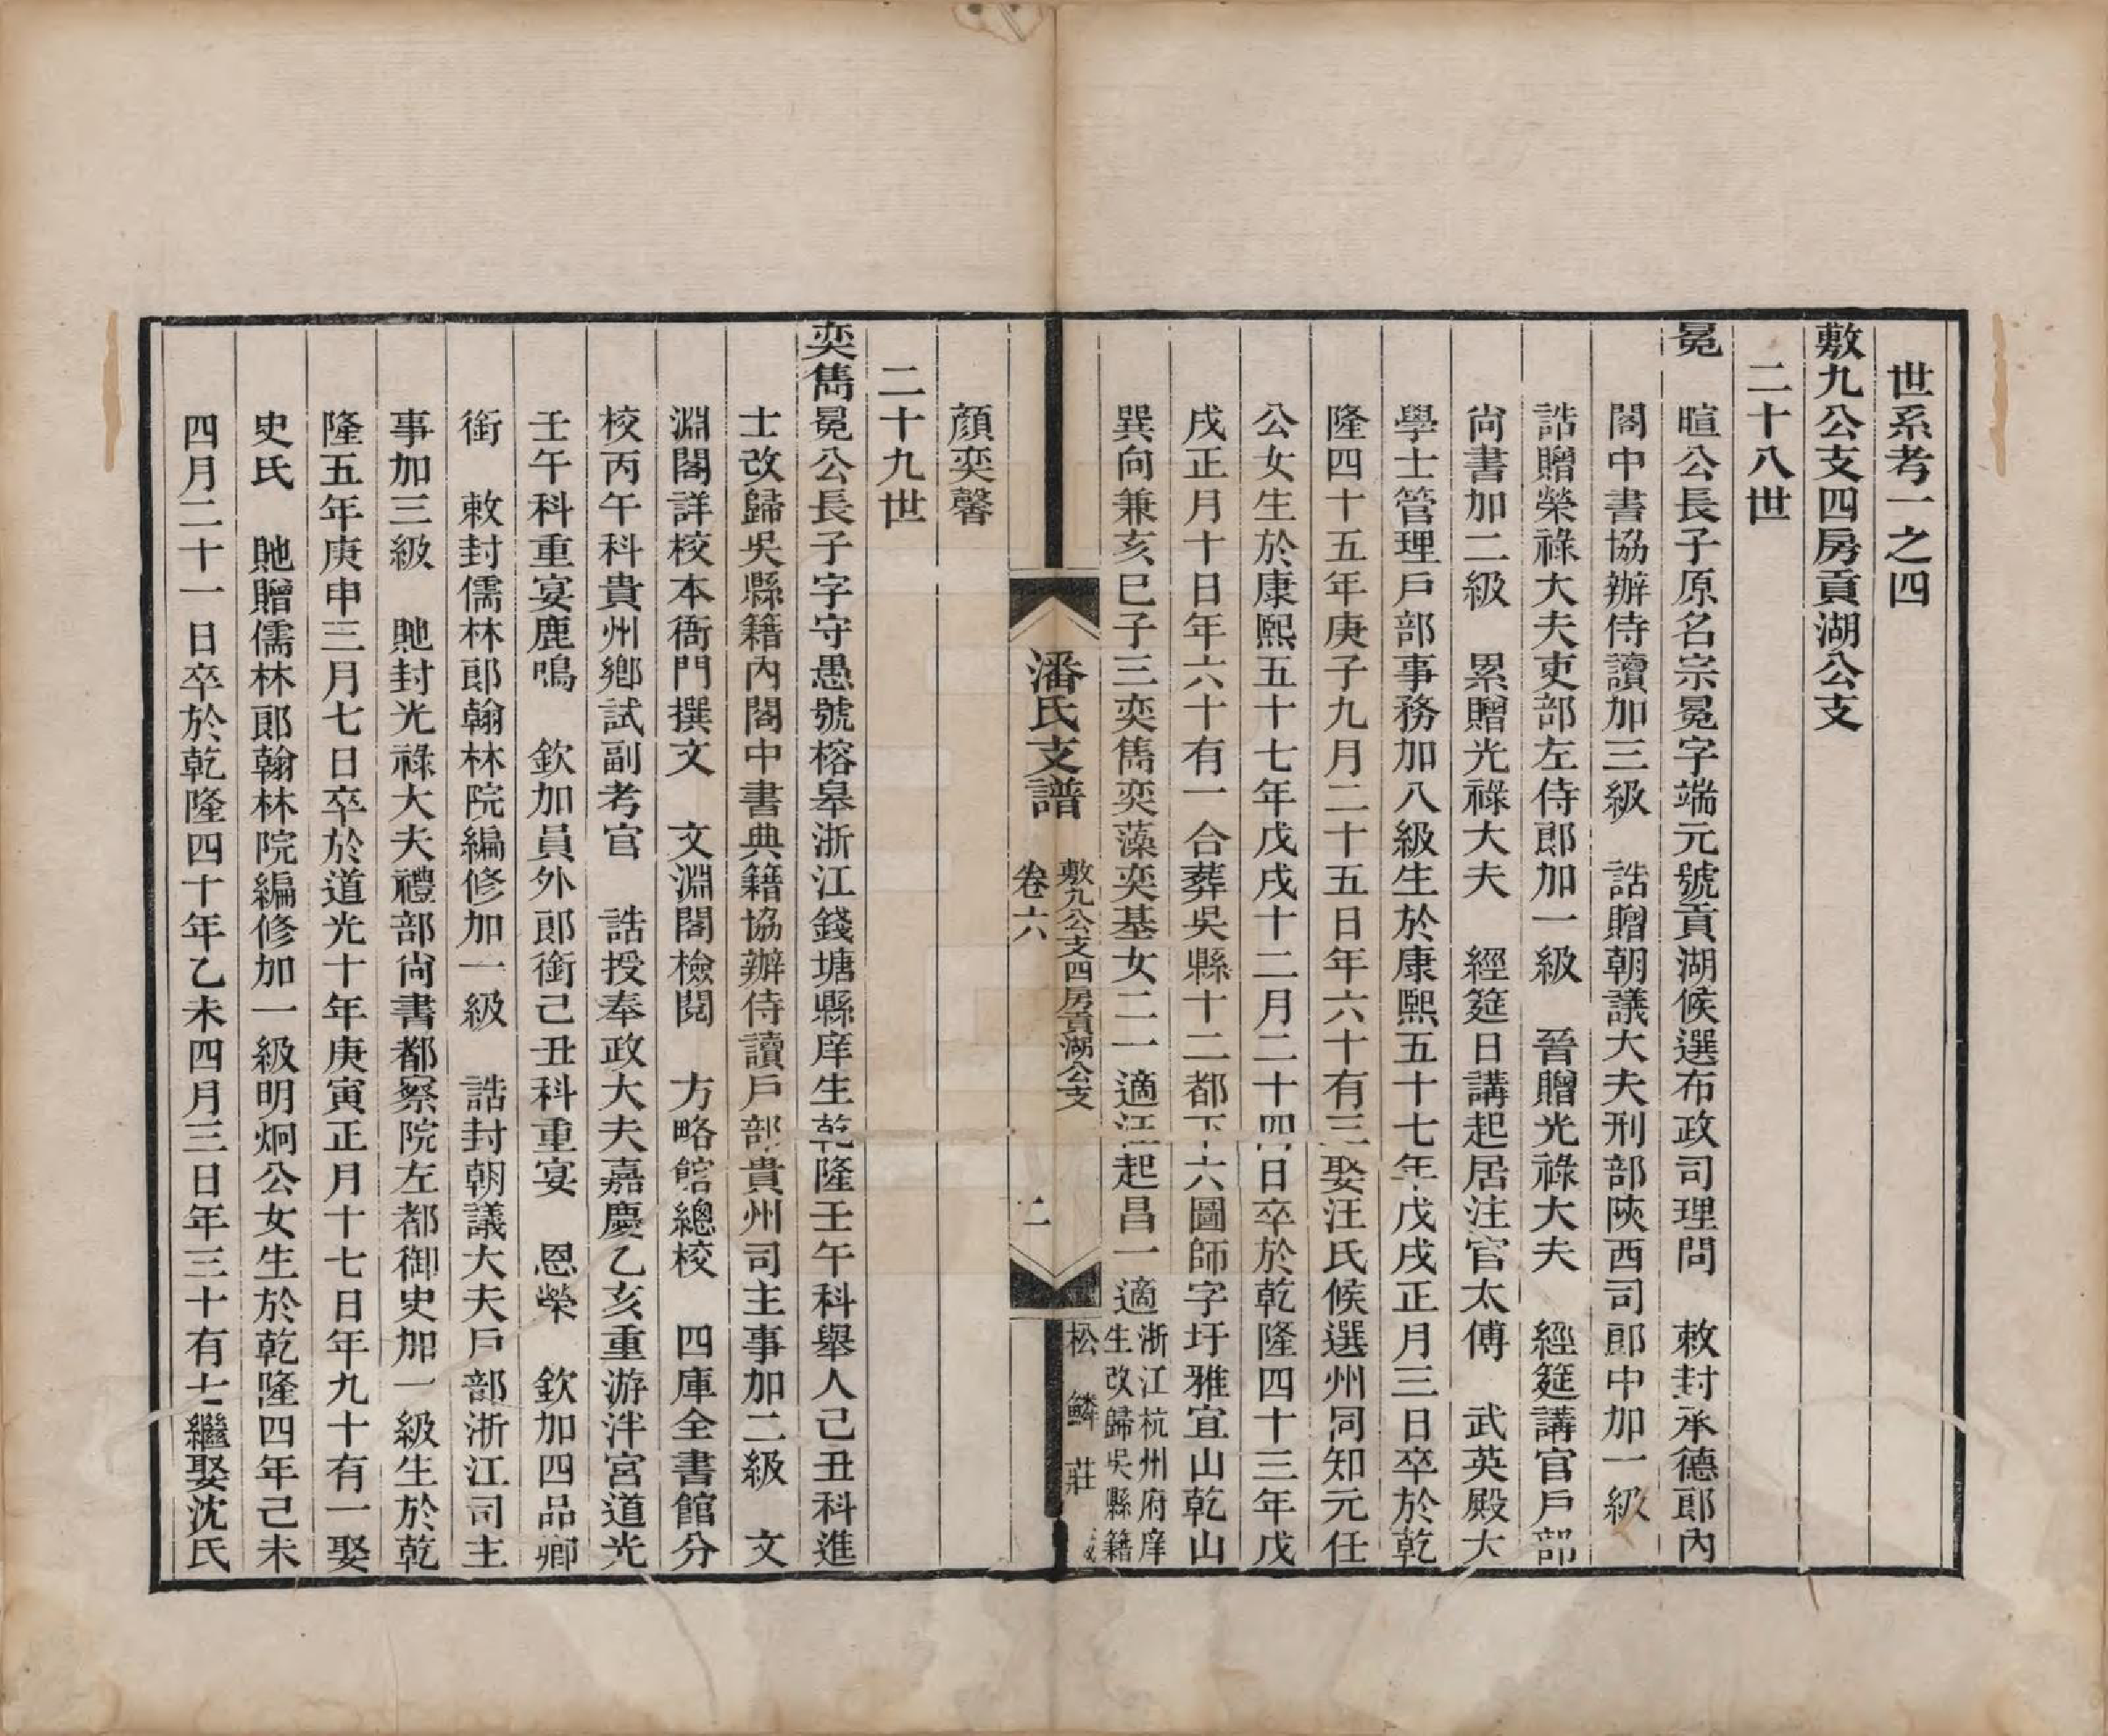 世系考一之四
敷九公支四房貢湖公支
二十八世
冕　暄公長子原名宗冕字端元號貢湖候選布政司理問　敕封承德郎內
閣中書協辦侍讀加三級　誥贈朝議大夫刑部陝西司郎中加一級
誥贈榮祿大夫吏部左侍郎加一級　晉贈光祿大夫　經筵講官戶部
尚書加二級　累贈光祿大夫　經筵日講起居注官太傅　武英殿大
學士管理戶部事務加八級生於康熙五十七年戊戌正月三日卒於乾
隆四十五年庚子九月二十五日年六十有三娶汪氏候選州同知元任
公女生於康熙五十七年戊戌十二月二十四日卒於乾隆四十三年戊
戌正月十日年六十有一合葬吳縣十二都下十六圖師字圩雅宜山乾山
巽向兼亥巳子三奕雋奕藻奕基女二一適汪起昌一適浙江杭州府庠
生改歸吳縣籍
潘氏支譜
敷九公支四房貢湖公支
卷六
二
松鱗莊
顏奕馨
二十九世
奕雋冕公長子字守愚號榕皋浙江錢塘縣庠生乾隆壬午科舉人己丑科進
士改歸吳縣籍內閣中書典籍協辦侍讀戶部貴州司主事加二級　文
淵閣詳校本衙門撰文　文淵閣檢閱　方略館總校　四庫全書館分
校丙午科貴州鄉試副考官　誥授奉政大夫嘉慶乙亥重游泮宮道光
壬午科重宴鹿鳴　欽加員外郎銜己丑科重宴　恩榮　欽加四品卿
銜　敕封儒林郎翰林院編修加一級　誥封朝議大夫戶部浙江司主
事加三級　貤封光祿大夫禮部尚書都察院左都御史加一級生於乾
隆五年庚申三月七日卒於道光十年庚寅正月十七日年九十有一娶
史氏　貤贈儒林郎翰林院編修加一級明炯公女生於乾隆四年己未
四月二十一日卒於乾隆四十年乙未四月三日年三十有七繼娶沈氏